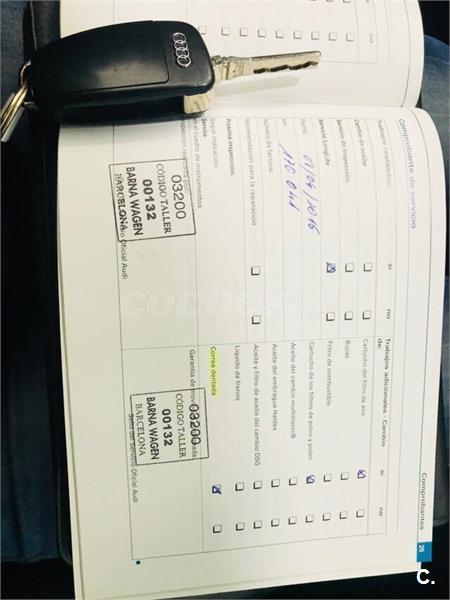 si
no
Comprobantes
26
Comprobante de servicio
Trabajos realizados:
si
no
Cambio de aceite
Servicio de inspección
Servicio LongLife
Fecha: 01/04/2016
km: 170 041
Número de factura:
Recomendación para la reparación
Próxima inspección:
Según indicación
Service
en el cuadro de instrumentos
03200
CÓDIGO TALLER
00132
BARNA WAGEN
BARCELONA
Oficial Audi
Trabajos adicionales - Cambio de:
si
no
Cartucho del filtro de aire
Bujías
Filtro de combustible
Cartucho de los filtros de polvo y polen
Aceite del cambio multitronic®
Aceite del embrague Haldex
Aceite y filtro de aceite del cambio DSG
Líquido de frenos
Correa dentada
Garantía de
03200
CÓDIGO TALLER
00132
BARNA WAGEN
BARCELONA
Sello del Servicio Oficial Audi
coches
C.